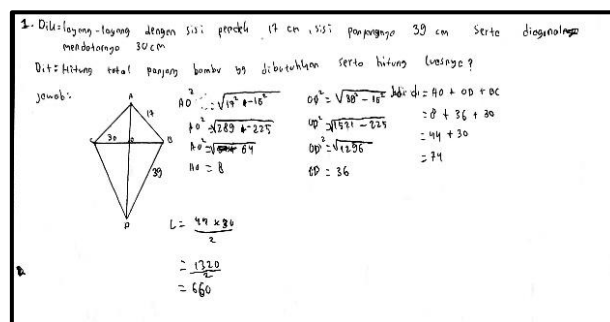 1. Dik = layang-layang dengan sisi pendek 17 cm, sisi panjangnya 39 cm serta diagonalnya
mendatarnya 30 cm
Dit = Hitung total panjang bambu yg dibutuhkan serta hitung luasnya?
jawab:
A
17
C 30 B
39
D
AO² = √17² - 15²
AO² = √289 - 225
AO² = √64
AO = 8
OD² = √39² - 15²
OD² = √1521 - 225
OD² = √1296
OD = 36
Jadi di = AO + OD + BC
= 8 + 36 + 30
= 44 + 30
= 74
L = 44 x 30
2
= 1320
2
= 660